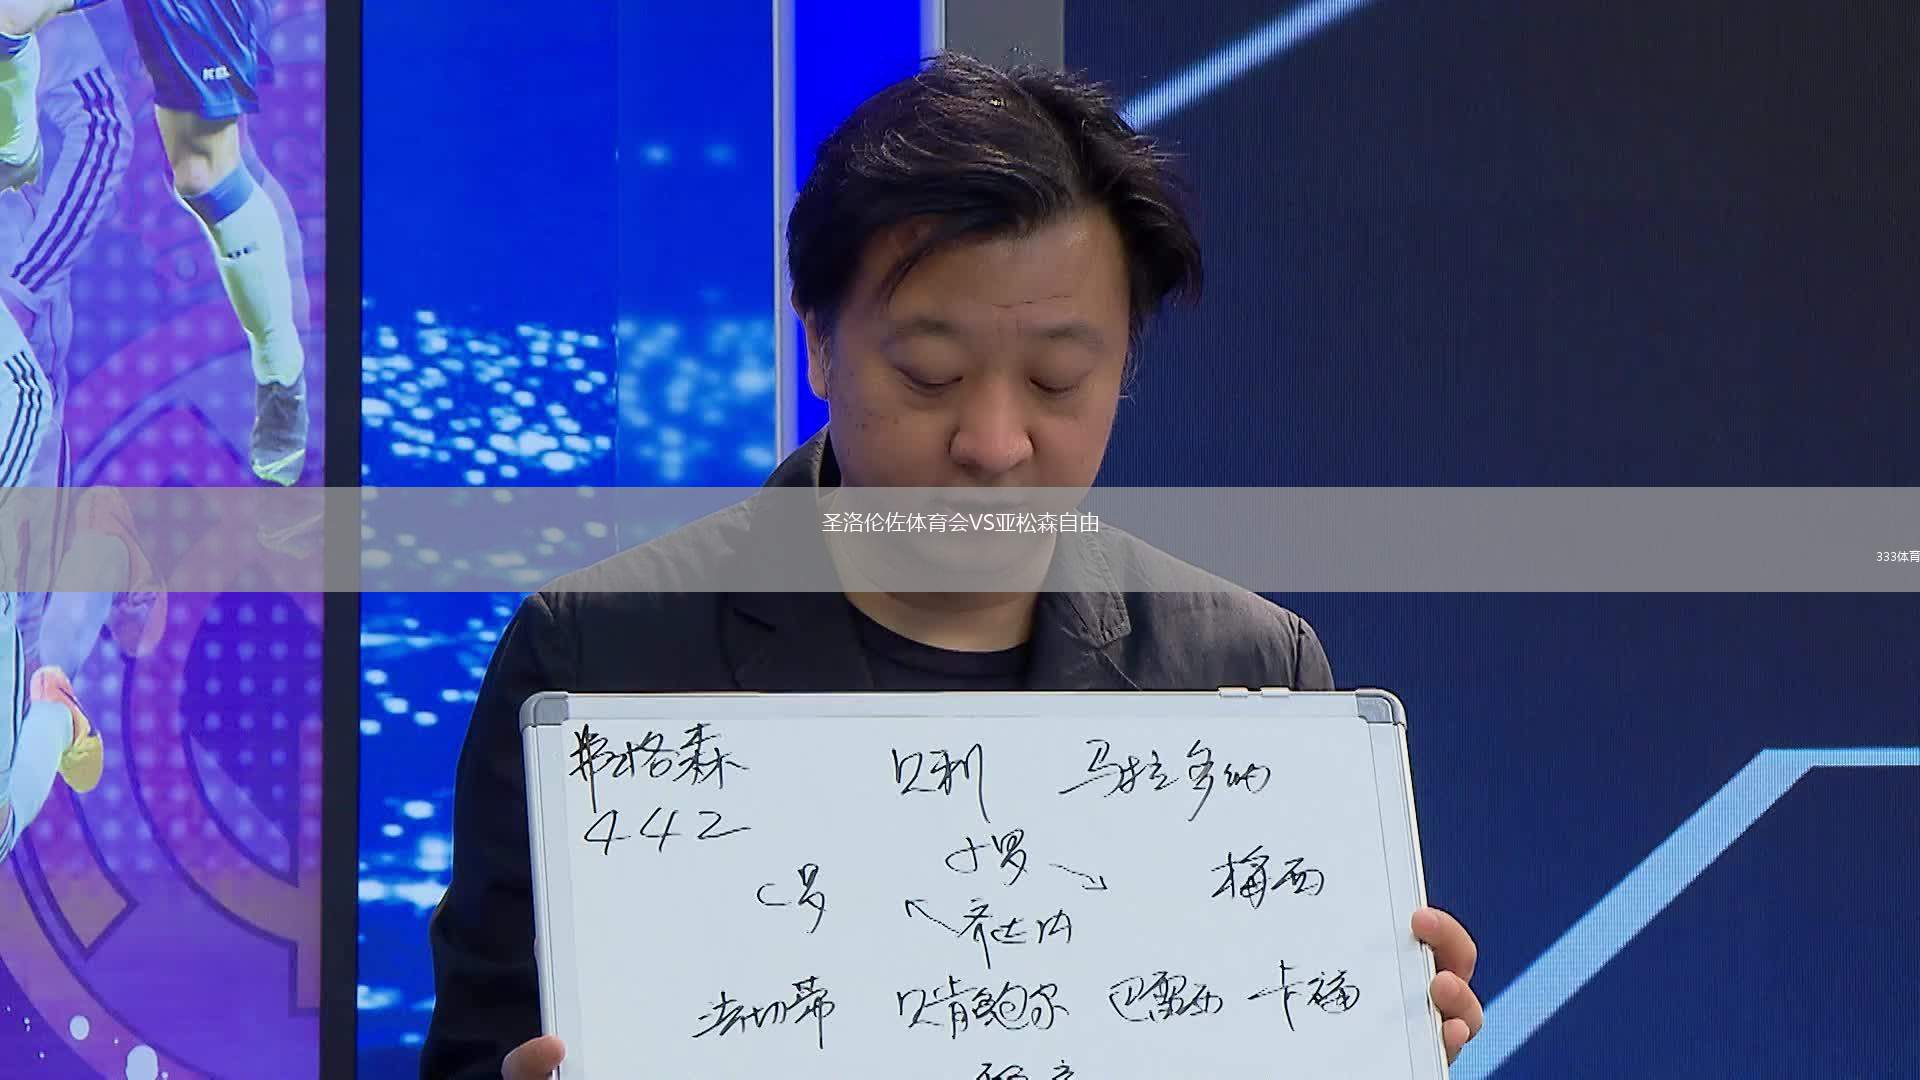 KEL
圣洛伦佐体育会VS亚松森自由
333体育
弗格森 贝利 马拉多纳
442
小罗
C罗 梅西
齐达内
法切蒂 贝肯鲍尔 巴雷西 卡福